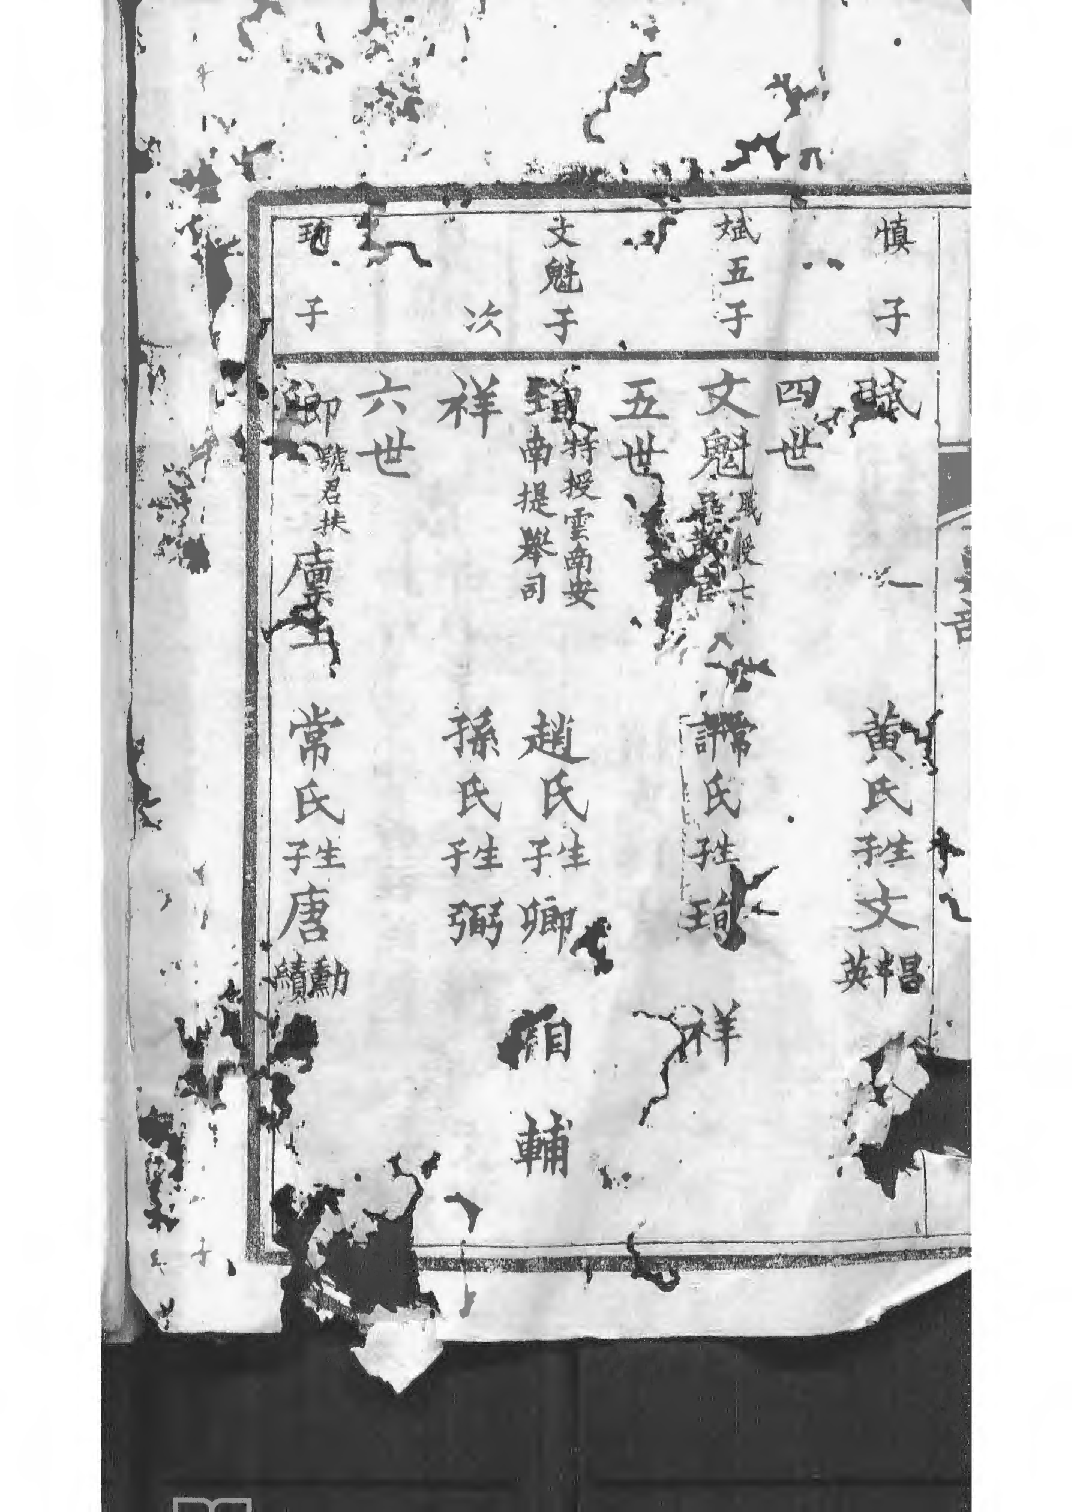 慎子
斌 黄氏生子文昌英
四世
斌五子
文魁 職授 常許氏生子珣 祥
五世
文魁子
珣 特授雲南安南提舉司 趙氏生子卿 相 輔
次
祥 孫氏生子弼
六世
珣子
卿 號君扶 廩生 常氏生子唐勳績